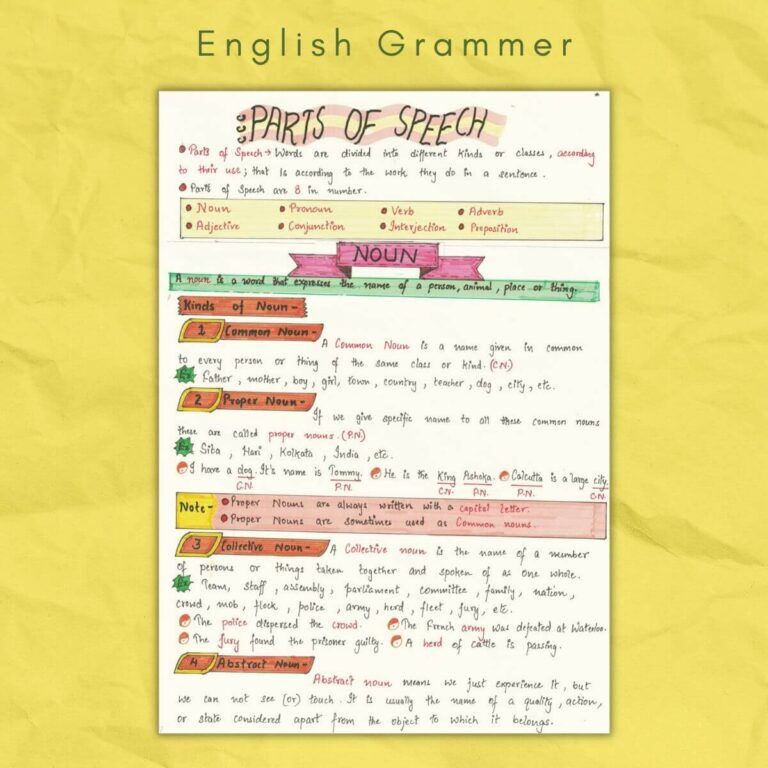 English Grammer
PARTS OF SPEECH
Parts of Speech → Words are divided into different kinds or classes, according
to their use; that is according to the work they do in a sentence.
Parts of Speech are 8 in number.
Noun Pronoun Verb Adverb
Adjective Conjunction Interjection Preposition
NOUN
A noun is a word that expresses the name of a person, animal, place or thing.
Kinds of Noun-
1 Common Noun-
A Common Noun is a name given in common
to every person or thing of the same class or kind. (C.N.)
Ex Father, mother, boy, girl, town, country, teacher, dog, city, etc.
2 Proper Noun-
If we give specific name to all these common nouns
these are called proper nouns. (P.N)
Ex Sita, Hari, Kolkata, India, etc.
I have a dog. It's name is Tommy. He is the King Ashoka. Calcutta is a large city.
C.N. P.N. C.N. P.N. P.N. C.N.
Note- Proper Nouns are always written with a capital letter.
Proper Nouns are sometimes used as Common nouns.
3 Collective Noun- A Collective noun is the name of a number
of persons or things taken together and spoken of as one whole.
Ex Team, staff, assembly, parliament, committee, family, nation,
crowd, mob, flock, police, army, herd, fleet, jury, etc.
The police dispersed the crowd. The French army was defeated at Waterloo.
The jury found the prisoner guilty. A herd of cattle is passing.
4 Abstract Noun-
Abstract noun means we just experience it, but
we can not see (or) touch. It is usually the name of a quality, action,
or state considered apart from the object to which it belongs.